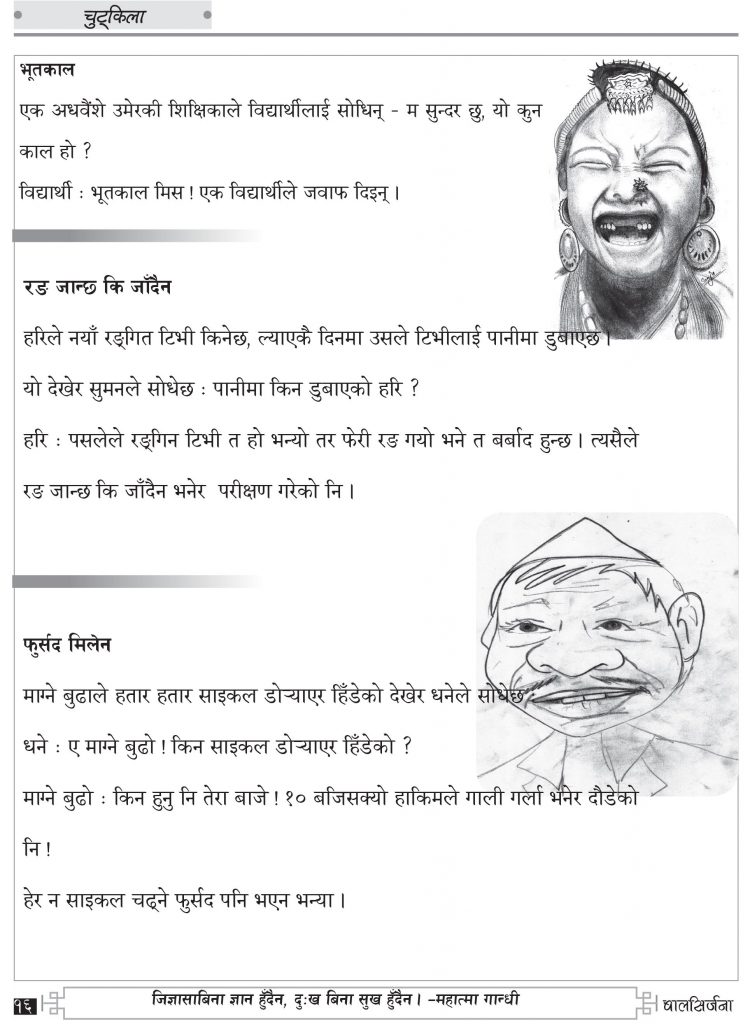 चुट्किला
भूतकाल
एक अधवैंशे उमेरकी शिक्षिकाले विद्यार्थीलाई सोधिन् - म सुन्दर छु, यो कुन
काल हो ?
विद्यार्थी : भूतकाल मिस ! एक विद्यार्थीले जवाफ दिइन् ।
रङ जान्छ कि जाँदैन
हरिले नयाँ रङ्गित टिभी किनेछ, ल्याएकै दिनमा उसले टिभीलाई पानीमा डुबाएछ ।
यो देखेर सुमनले सोधेछ : पानीमा किन डुबाएको हरि ?
हरि : पसलेले रङ्गिन टिभी त हो भन्यो तर फेरी रङ गयो भने त बर्बाद हुन्छ । त्यसैले
रङ जान्छ कि जाँदैन भनेर परीक्षण गरेको नि ।
फुर्सद मिलेन
माग्ने बुढाले हतार हतार साइकल डोऱ्याएर हिँडेको देखेर धनेले सोधेछ :
धने : ए माग्ने बुढो ! किन साइकल डोऱ्याएर हिँडेको ?
माग्ने बुढो : किन हुनु नि तेरा बाजे ! १० बजिसक्यो हाकिमले गाली गर्ला भनेर दौडेको
नि !
हेर न साइकल चढ्ने फुर्सद पनि भएन भन्या ।
१६
जिज्ञासाबिना ज्ञान हुँदैन, दुःख बिना सुख हुँदैन । -महात्मा गान्धी
बालसिर्जना